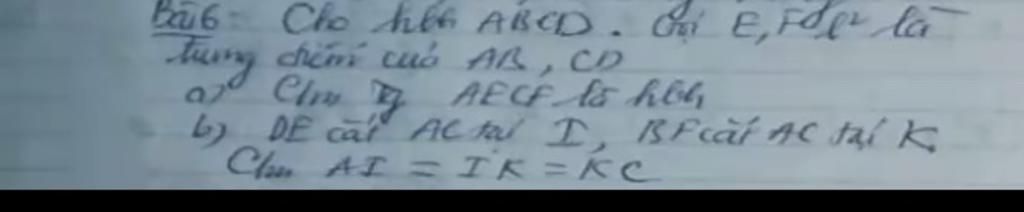 Bài 6: Cho hbh ABCD. Gọi E, F là
trung điểm của AB, CD
a) Cm AECF là hbh
b) DE cắt AC tại I, BF cắt AC tại K.
Cm AI = IK = KC